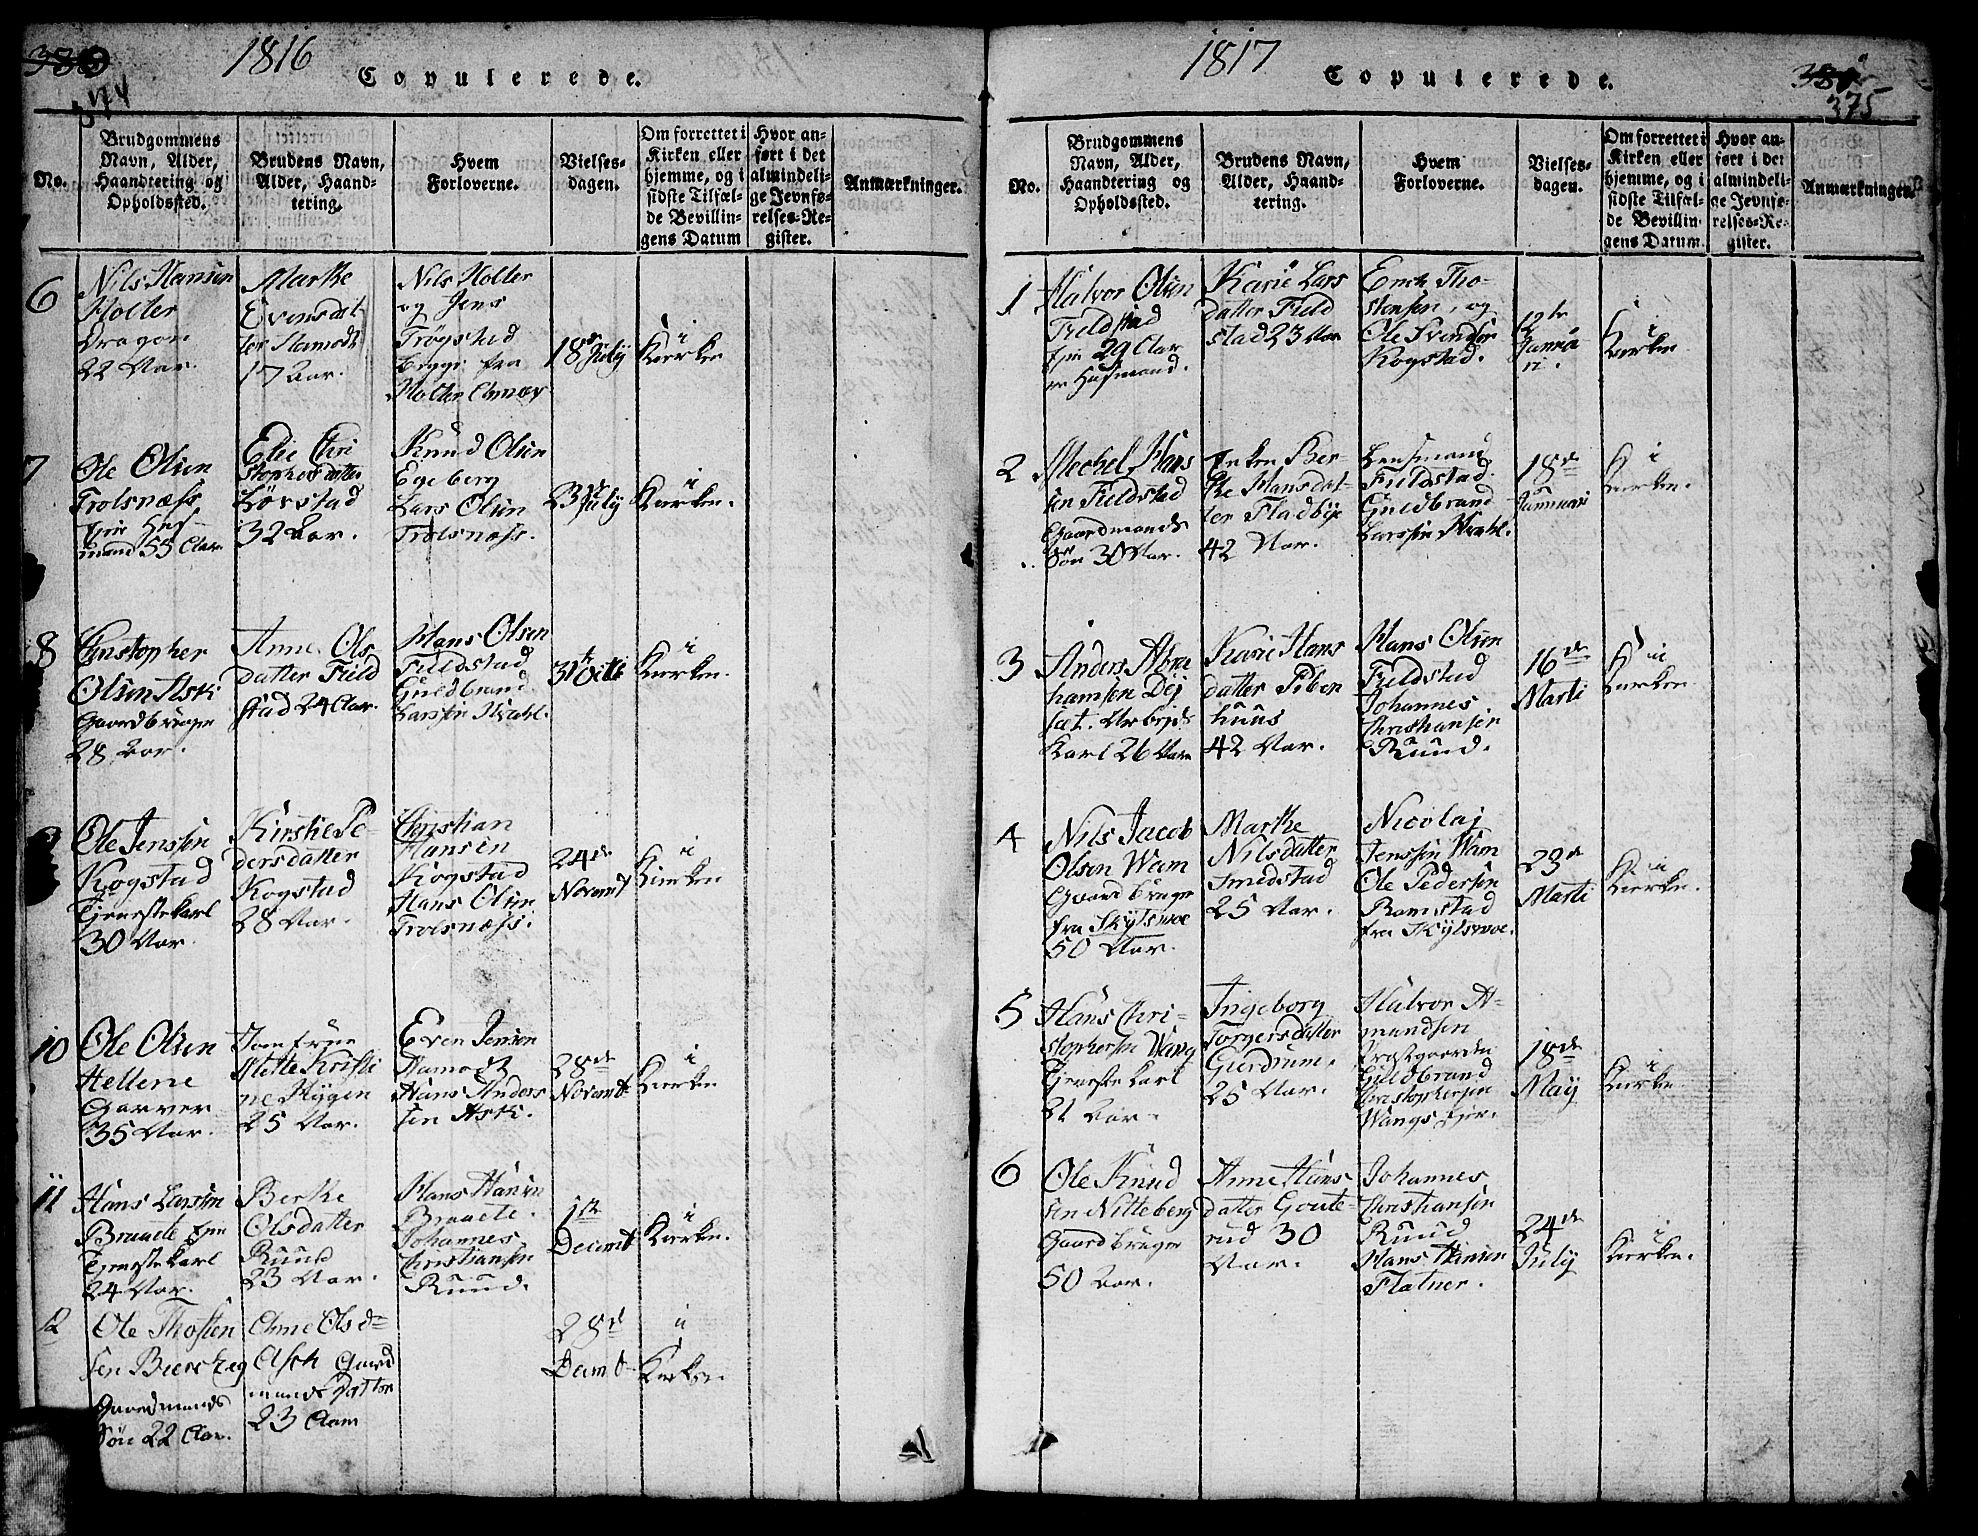 1816
Copulerede.
374
No.
Brudgommens Navn, Alder, Haandtering og Opholdssted.
Brudens Navn, Alder, Haandtering.
Hvem Forloverne.
Vielsesdagen.
Om forrettet i Kirken eller hjemme, og i sidste Tilfælde Bevillingens Datum
Hvor anført i det almindelige Jevnførelses-Register.
Anmærkninger.
6
Nils Hansen
Holter
Dragon
22 Aar.
Marthe
Evensdat
ter Hamodt
17 Aar.
Nils Holter
og Jens
Trøgstad
begge fra
Holter Annex
18de July
i
Kierken
7
Ole Olsen
Trolsnæss
Huus
mand 55 Aar
Elie Chri
stophersdatter
Lørstad
32 Aar.
Knud Olsen
Egeberg
Lars Olsen
Trolsnæss.
23de July
i
Kierken.
8
Christopher
Olsen Aski
Gaardbruger
28 Aar.
Anne Ols
datter Field
stad 24 Aar.
Hans Olsen
Fieldstad
Guldbrand
Larssen Kvahl.
31te Octb
i
Kierken.
9
Ole Jenssen
Kogstad
Tjenestekarl
30 Aar.
Kirstie Pe
dersdatter
Kogstad
28 Aar.
Christian
Hansen
Kogstad
Hans Olsen
Trolsnæss.
24de
Novemb
i
Kierken
10
Ole Olsen
Hellene
Garver
35 Aar.
Jomfrue
Mette Kristi
ne Hygen
25 Aar.
Even Jensen
Hamodt
Hans Anders
sen Aski.
28de
Novemb
i
Kierken
11
Hans Larssen
Braate
Tjenestekarl
24 Aar.
Berthe
Olsdatter
Ruud
23 Aar.
Hans Hansen
Braate.
Johannes
Christiansen
Ruud.
1ste
Decemb
i
Kierken.
12
Ole Thosten
sen Bierckeg
Gaardmands
Søn 22 Aar.
Anne Olsd
Asch Gaard
mands Datter
23 Aar
28de
Decemb
i
Kirken.
1817
Copulerede.
375
No.
Brudgommens Navn, Alder, Haandtering og Opholdssted.
Brudens Navn, Alder, Haandtering.
Hvem Forloverne.
Vielsesdagen.
Om forrettet i Kirken eller hjemme, og i sidste Tilfælde Bevillingens Datum.
Hvor anført i det almindelige Jevnførelses-Register.
Anmærkninger.
1
Halvor Olsen
Fieldstad
29 Aar
Husmand.
Karie Lars
datter Field
stad 23 Aar
Erich Tho
stensen, og
Ole Svendsen
Kogstad.
12te
Janua
ri.
i
Kierken
2
Mechel Hans
sen Fieldstad
Gaardmands
Søn 30 Aar.
Enken Ber
the Hansdat
ter Fladbye
42 Aar.
Lensmand
Fieldstad
Guldbrand
Larssen Kvahl.
18de
Januari
i
Kierken.
3
Anders Abra
hamsen Dej
sæt. Arbejds
karl 26 Aar
Karie Hans
datter Piben
huus
42 Aar.
Hans Olsen
Fieldstad
Johannes
Christiansen
Ruud.
16de
Marti
i
Kierken
4
Nils Jacob
Olsen Wam
Gaardbruger
fra Skytsmoe
50 Aar.
Marthe
Nilsdatter
Smedstad
25 Aar.
Nicolaj
Jenssen Wam
Ole Pedersen
Ramstad
fra Skytsmoe.
23de
Marti
i
Kierken.
5
Hans Chri
stophersen Wang
Tjenestekarl
21 Aar.
Ingeborg
Torgersdatter
Gurdrum.
25 Aar.
Halvor A
mundsen
Præstgaarden
Guldbrand
Christophersen
Wangs Ejer.
18de
May
i
Kierken.
6
Ole Knud
sen Nitteberg
Gaardbruger
50 Aar.
Anne Hans
datter Goute
rud 30
Aar.
Johannes
Christiansen
Ruud
Hans Hansen
Flatner.
24de
July
i
Kierken.